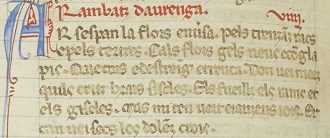 Rambautz daurenga. viiij.
AR sespan la flors enuersa. pels trencanz rancs
epels tertres. Cals flors gels neue ecōgla
pis. Que cotz edestreig etrenca. Don uei morz
quils critz brais siscles. Els fueills els rams e
els giscles. mas mi ten uert eiauzens iois. Er
can uei secs los dolēz crois.